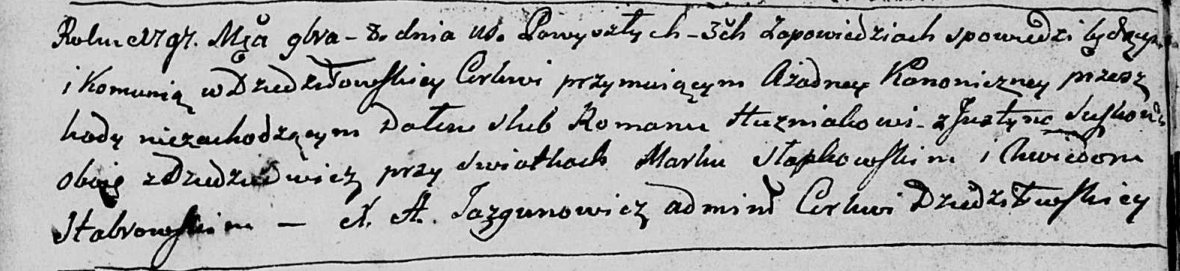 Roku 1797. Mca 9bra – 8. dnia us. Powyszłych – 3ch Zapowiedziach spowiedzi będący
i Komunią w Dziedziłowskiey Cerkwi przymuiącym Ażadney Kanoniczney przesz
kody niezachodzącym Dałem slub Romanu Huzniakowi – z Justyną
oboie z przy swiatkach Marku Słapkowskim i Chwiedorem
Stabrowskim – A. Jazgunowicz admin Cerkwi Dziedziłowskiey